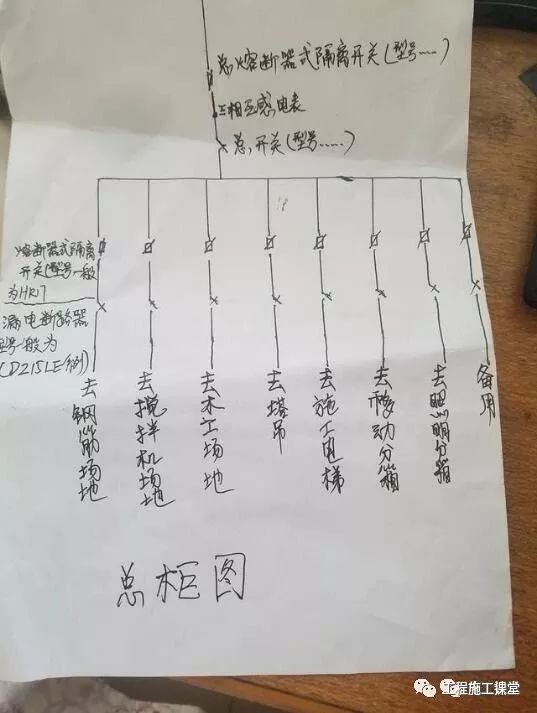 总熔断器式隔离开关(型号.....)
三相互感电表
总开关(型号......)
熔断器式隔离
开关(型号一般
为HR17
漏电断路器
型号一般为
(DZ15LE/例)
去钢筋场地
去搅拌机场地
去木工场地
去塔吊
去施工电梯
去移动分箱
去照明分箱
备用
总柜图
工程施工课堂